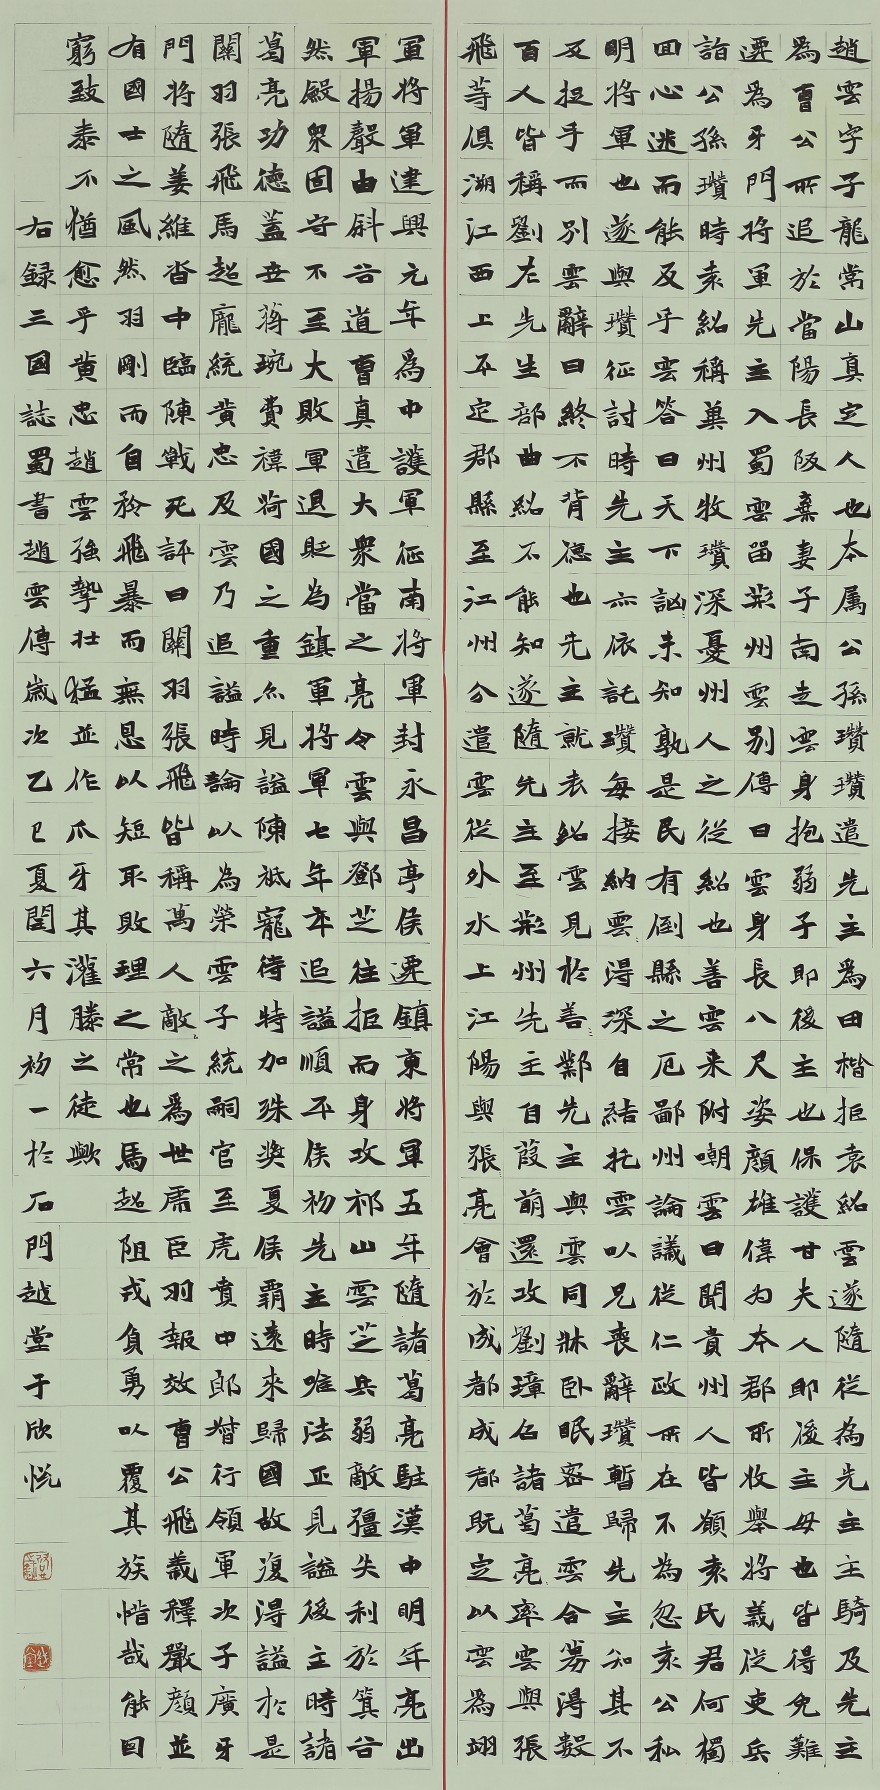 趙雲字子龍常山真定人也本属公孫瓚瓚遣先主為田楷拒袁紹雲遂隨從為先主主騎及先主
為曹公所追於當陽長阪棄妻子南走雲身抱弱子即後主也保護甘夫人即後主母也皆得免難
遷為牙門將軍先主入蜀雲留荊州雲別傳曰雲身長八尺姿顏雄偉為本郡所收舉將義從吏兵
詣公孫瓚時袁紹稱冀州牧瓚深憂州人之從紹也善雲来附嘲雲曰聞貴州人皆願袁氏君何獨
回心迷而能反乎雲答曰天下訩未知孰是民有倒縣之厄鄙州論議從仁政所在不為忽袁公私
明將軍也遂與瓚征討時先主亦依託瓚每接納雲〻得深自結托雲以兄喪辭瓚暫歸先主知其不
反捉手而別雲辭曰終不背德也先主就袁紹雲見於善鄴先主與雲同牀卧眠密遣雲合募得數
百人皆稱劉左先生部曲紹不能知遂隨先主至荊州先主自葭萌還攻劉璋召諸葛亮率雲與張
飛等俱溯江西上平定郡縣至江州分遣雲從外水上江陽與張亮會於成都成都既定以雲為翊
軍將軍建興元年為中護軍征南將軍封永昌亭侯遷鎮東將軍五年隨諸葛亮駐漢中明年亮出
軍揚聲由斜谷道曹真遣大衆當之亮令雲與鄧芝往拒而身攻祁山雲芝兵弱敵彊失利於箕谷
然斂衆固守不至大敗軍退貶為鎮軍將軍七年卒追謚順平侯初先主時唯法正見謚後主時諸
葛亮功德蓋世蔣琬費禕荷國之重亦見謚陳祗寵待特加殊獎夏侯霸遠來歸國故復得謚於是
關羽張飛馬超龐統黃忠及雲乃追謚時論以為榮雲子統嗣官至虎賁中郎督行領軍次子廣牙
門將隨姜維沓中臨陳戰死評曰關羽張飛皆稱萬人敵之為世虎臣羽報效曹公飛義釋嚴顏並
有國士之風然羽剛而自矜飛暴而無恩以短取敗理之常也馬超阻戎負勇以覆其族惜哉能因
窮致泰不猶愈乎黃忠趙雲強摯壯猛並作爪牙其灌滕之徒歟
右録三國誌蜀書趙雲傳歲次乙巳夏閏六月初一於石門越堂于欣悅